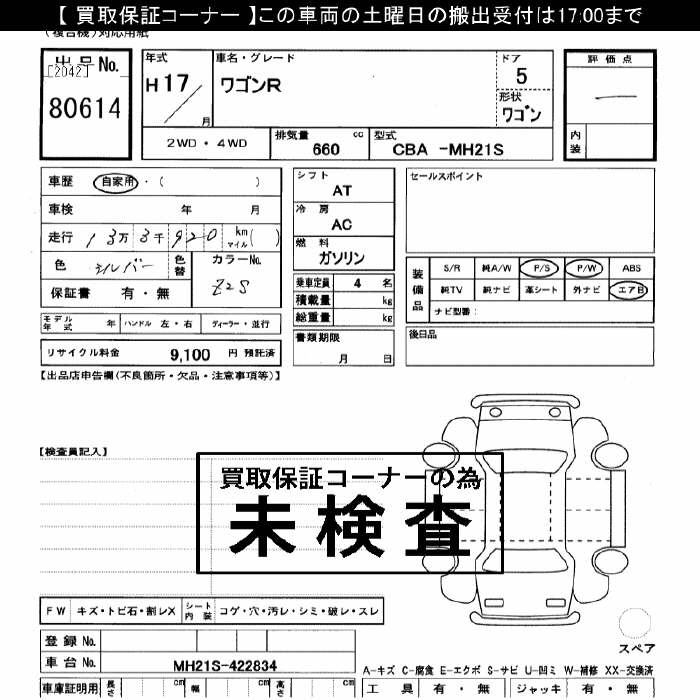 【 買取保証コーナー 】この車両の土曜日の搬出受付は17:00まで
(複合機)対応用紙
出品No.
[2042]
80614
年式
H17
月
車名・グレード
ワゴンR
ドア
5
形状
ワゴン
評価点
内装
2WD・4WD
排気量
660 cc
型式
CBA -MH21S
車歴 自家用・( )
車検 年 月
走行 13万3千920 km マイル( )
色 シルバー 色替 カラーNo. Z2S
保証書 有・無
モデル年式 年 ハンドル 左・右 ディーラー・並行
リサイクル料金 9,100 円 預託済
シフト
AT
冷房
AC
燃料
ガソリン
乗車定員 4 名
積載量 kg
総重量 kg
書類期限
月 日
セールスポイント
装備品
S/R 純A/W P/S P/W ABS
純TV 純ナビ 革シート 外ナビ エアB
ナビ型番:
後日品
【出品店申告欄(不良箇所・欠品・注意事項等)】
【検査員記入】
買取保証コーナーの為
未検査
FW キズ・トビ石・割レX シート内装 コゲ・穴・汚レ・シミ・破レ・スレ
スペア
登録 No.
車台 No. MH21S-422834
A-キズ C-腐食 E-エクボ S-サビ U-凹ミ W-補修 XX-交換済
車庫証明用 長さ cm 幅 cm 高さ cm
工具 有・無 ジャッキ 有・無